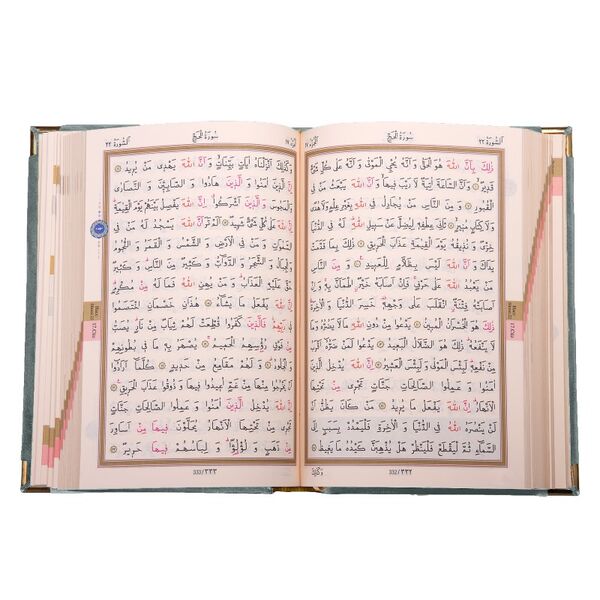 اَلسُّورَةُ ٢٢
سُورَةُ الْحَجِّ
اَلْجُزْءُ ١٧
ذٰلِكَ بِاَنَّ اللّٰهَ هُوَ الْحَقُّ وَ اَنَّهُ يُحْيِ الْمَوْتٰى وَ اَنَّهُ عَلٰى كُلِّ شَيْءٍ
قَدِيرٌ وَ اَنَّ السَّاعَةَ اٰتِيَةٌ لَا رَيْبَ فِيهَا وَ اَنَّ اللّٰهَ يَبْعَثُ مَنْ فِي
الْقُبُورِ وَ مِنَ النَّاسِ مَنْ يُجَادِلُ فِي اللّٰهِ بِغَيْرِ عِلْمٍ وَلَا هُدًى
وَلَا كِتَابٍ مُنِيرٍ ثَانِيَ عِطْفِهِ لِيُضِلَّ عَنْ سَبِيلِ اللّٰهِ لَهُ فِي الدُّنْيَا
خِزْيٌ وَ نُذِيقُهُ يَوْمَ الْقِيٰمَةِ عَذَابَ الْحَرِيقِ ذٰلِكَ بِمَا قَدَّمَتْ
يَدَاكَ وَ اَنَّ اللّٰهَ لَيْسَ بِظَلَّامٍ لِلْعَبِيدِ وَ مِنَ النَّاسِ
مَنْ يَعْبُدُ اللّٰهَ عَلٰى حَرْفٍ فَاِنْ اَصَابَهُ خَيْرٌ اطْمَاَنَّ بِهِ وَ اِنْ
اَصَابَتْهُ فِتْنَةٌ انْقَلَبَ عَلٰى وَجْهِهِ خَسِرَ الدُّنْيَا وَ الْاٰخِرَةَ
ذٰلِكَ هُوَ الْخُسْرَانُ الْمُبِينُ يَدْعُوا مِنْ دُونِ اللّٰهِ مَا لَا يَضُرُّهُ وَ مَا
لَا يَنْفَعُهُ ذٰلِكَ هُوَ الضَّلَالُ الْبَعِيدُ يَدْعُوا لَمَنْ ضَرُّهُ اَقْرَبُ
مِنْ نَفْعِهِ لَبِئْسَ الْمَوْلٰى وَ لَبِئْسَ الْعَشِيرُ اِنَّ اللّٰهَ يُدْخِلُ
الَّذِينَ اٰمَنُوا وَ عَمِلُوا الصَّالِحَاتِ جَنَّاتٍ تَجْرِي مِنْ تَحْتِهَا
الْاَنْهَارُ اِنَّ اللّٰهَ يَفْعَلُ مَا يُرِيدُ مَنْ كَانَ يَظُنُّ اَنْ لَنْ
يَنْصُرَهُ اللّٰهُ فِي الدُّنْيَا وَ الْاٰخِرَةِ فَلْيَمْدُدْ بِسَبَبٍ اِلَى
السَّمَاءِ ثُمَّ لْيَقْطَعْ فَلْيَنْظُرْ هَلْ يُذْهِبَنَّ كَيْدُهُ مَا يَغِيظُ
332/٣٣٢
وَكَذٰلِكَ
الْجُزْءُ ١٧
سُورَةُ الْحَجِّ
اَلسُّورَةُ ٢٢
وَ كَذٰلِكَ اَنْزَلْنَاهُ اٰيَاتٍ بَيِّنَاتٍ وَ اَنَّ اللّٰهَ يَهْدِي مَنْ يُرِيدُ
اِنَّ الَّذِينَ اٰمَنُوا وَ الَّذِينَ هَادُوا وَ الصَّابِئِينَ وَ النَّصَارٰى
وَ الْمَجُوسَ وَ الَّذِينَ اَشْرَكُوا اِنَّ اللّٰهَ يَفْصِلُ بَيْنَهُمْ يَوْمَ الْقِيٰمَةِ
اِنَّ اللّٰهَ عَلٰى كُلِّ شَيْءٍ شَهِيدٌ اَلَمْ تَرَ اَنَّ اللّٰهَ يَسْجُدُ لَهُ مَنْ فِي
السَّمٰوَاتِ وَ مَنْ فِي الْاَرْضِ وَ الشَّمْسُ وَ الْقَمَرُ وَ النُّجُومُ
وَ الْجِبَالُ وَ الشَّجَرُ وَ الدَّوَابُّ وَ كَثِيرٌ مِنَ النَّاسِ وَ كَثِيرٌ
حَقَّ عَلَيْهِ الْعَذَابُ وَ مَنْ يُهِنِ اللّٰهُ فَمَا لَهُ مِنْ مُكْرِمٍ
اِنَّ اللّٰهَ يَفْعَلُ مَا يَشَاءُ هٰذَانِ خَصْمَانِ اخْتَصَمُوا
فِي رَبِّهِمْ فَالَّذِينَ كَفَرُوا قُطِّعَتْ لَهُمْ ثِيَابٌ مِنْ نَارٍ يُصَبُّ
مِنْ فَوْقِ رُؤُسِهِمُ الْحَمِيمُ يُصْهَرُ بِهِ مَا فِي بُطُونِهِمْ
وَ الْجُلُودُ وَ لَهُمْ مَقَامِعُ مِنْ حَدِيدٍ كُلَّمَا اَرَادُوا
اَنْ يَخْرُجُوا مِنْهَا مِنْ غَمٍّ اُعِيدُوا فِيهَا وَ ذُوقُوا عَذَابَ الْحَرِيقِ
اِنَّ اللّٰهَ يُدْخِلُ الَّذِينَ اٰمَنُوا وَ عَمِلُوا الصَّالِحَاتِ جَنَّاتٍ
تَجْرِي مِنْ تَحْتِهَا الْاَنْهَارُ يُحَلَّوْنَ فِيهَا مِنْ اَسَاوِرَ
مِنْ ذَهَبٍ وَ لُؤْلُؤًا وَ لِبَاسُهُمْ فِيهَا حَرِيرٌ
333/٣٣٣
17.Cüz
17.Cüz